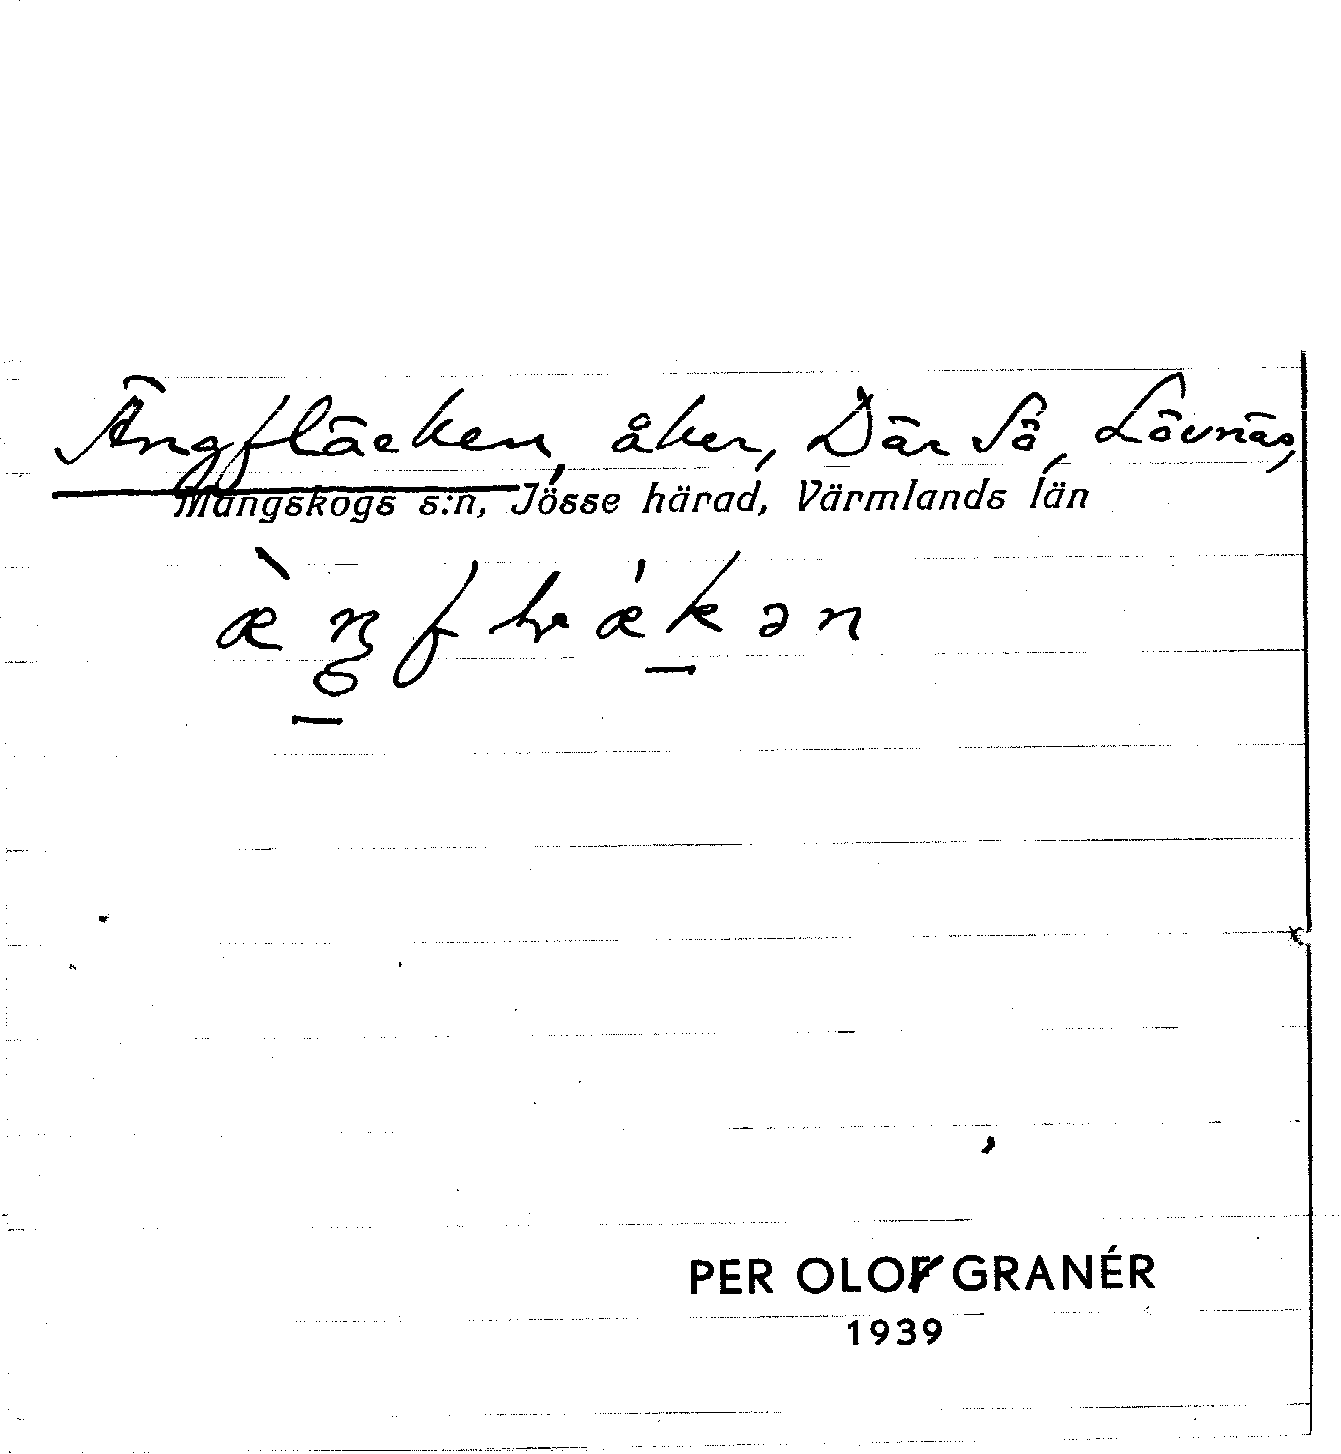 Ängfläcken, åker, Där Sö, Lövnäs,
Mangskogs s:n, Jösse härad, Värmlands län
PER OLOF GRANÉR
1939